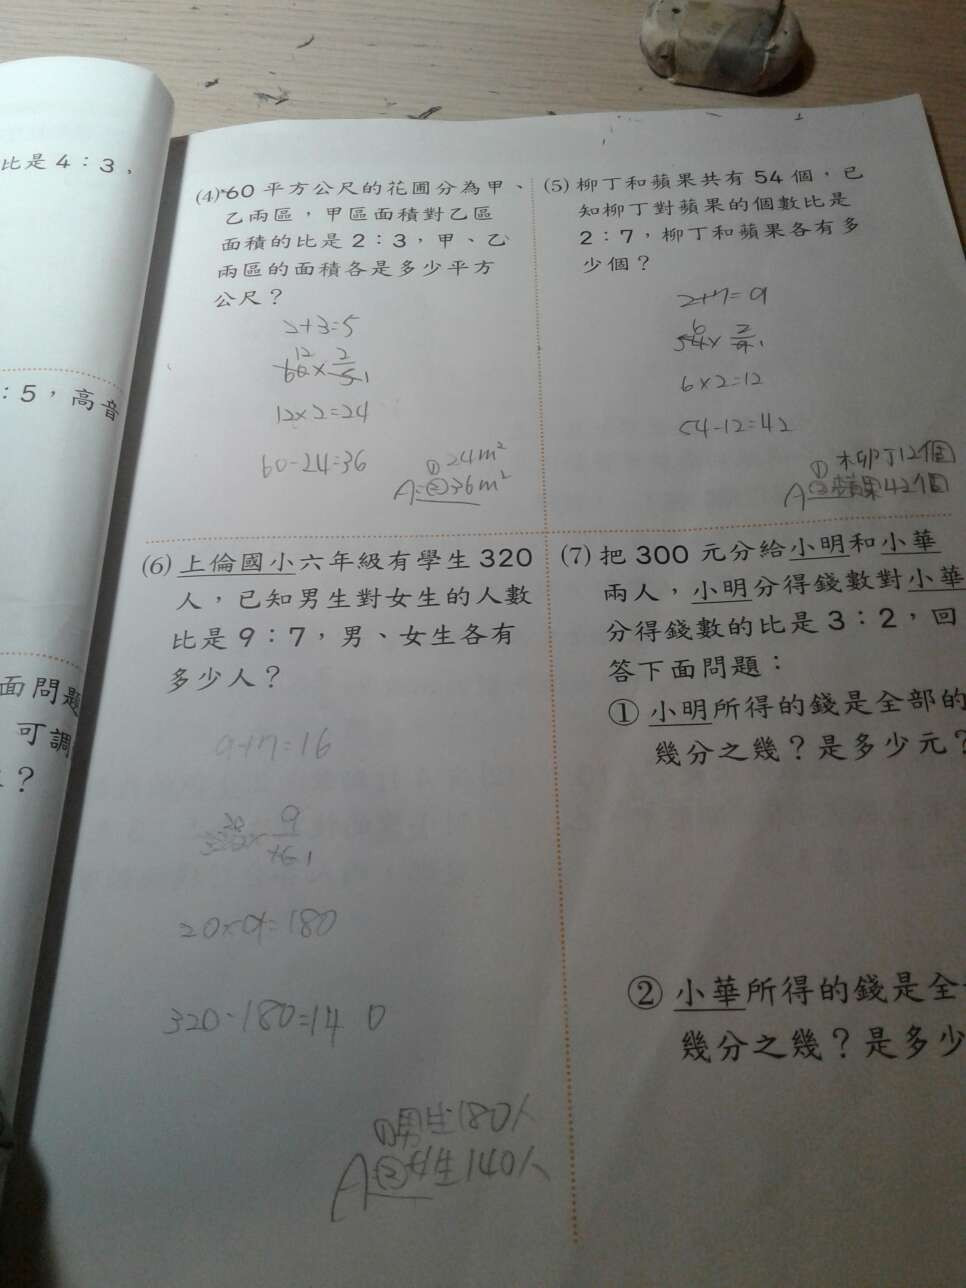 比是 4：3，
：5，高音
面問題
可調
？
(4) 60 平方公尺的花圃分為甲、
乙兩區，甲區面積對乙區
面積的比是 2：3，甲、乙
兩區的面積各是多少平方
公尺？
2+3=5
12
60×2/5 1
12×2=24
60-24=36
①24m²
A：②36m²
(5) 柳丁和蘋果共有 54 個，已
知柳丁對蘋果的個數比是
2：7，柳丁和蘋果各有多
少個？
2+7=9
6
54×2/9 1
6×2=12
54-12=42
①柳丁12個
A ②蘋果42個
(6) 上倫國小六年級有學生 320
人，已知男生對女生的人數
比是 9：7，男、女生各有
多少人？
9+7=16
20
320×9/16 1
20×9=180
320-180=140
①男生180人
A ②女生140人
(7) 把 300 元分給小明和小華
兩人，小明分得錢數對小華
分得錢數的比是 3：2，回
答下面問題：
① 小明所得的錢是全部的
幾分之幾？是多少元？
② 小華所得的錢是全
幾分之幾？是多少